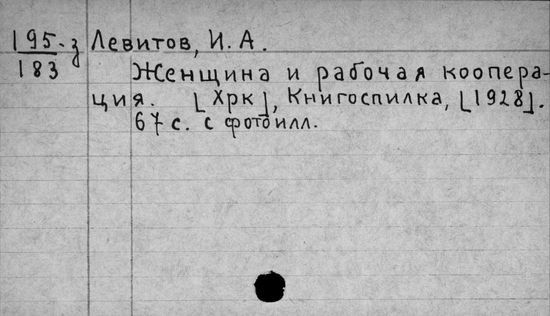 195-з Левитов, И. А.
183
Женщина и рабочая коопера-
ция. [Хрк], Книгоспилка, [1928].
67 с. с фотоилл.